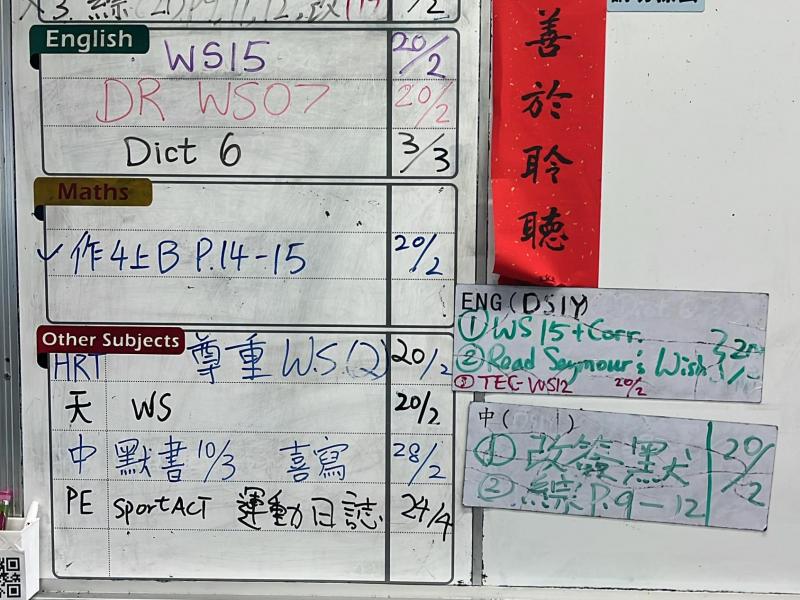 3. 綜(2) P.9, 11, 12, 改
English
WS15 20/2
DR WS07 20/2
Dict 6 3/3
Maths
✓ 作4上B P.14-15 20/2
Other Subjects
HRT 尊重 W.S.(2) 20/2
天 WS 20/2
中 默書 10/3 喜寫 28/2
PE SportACT 運動日誌 24/4
善於聆聽
ENG (DS1Y)
① WS 15 + Corr.
② Read Seymour's Wish
③ TEC-WS12 20/2
中 (
① 改簽默 20/2
② 綜 P.9-12